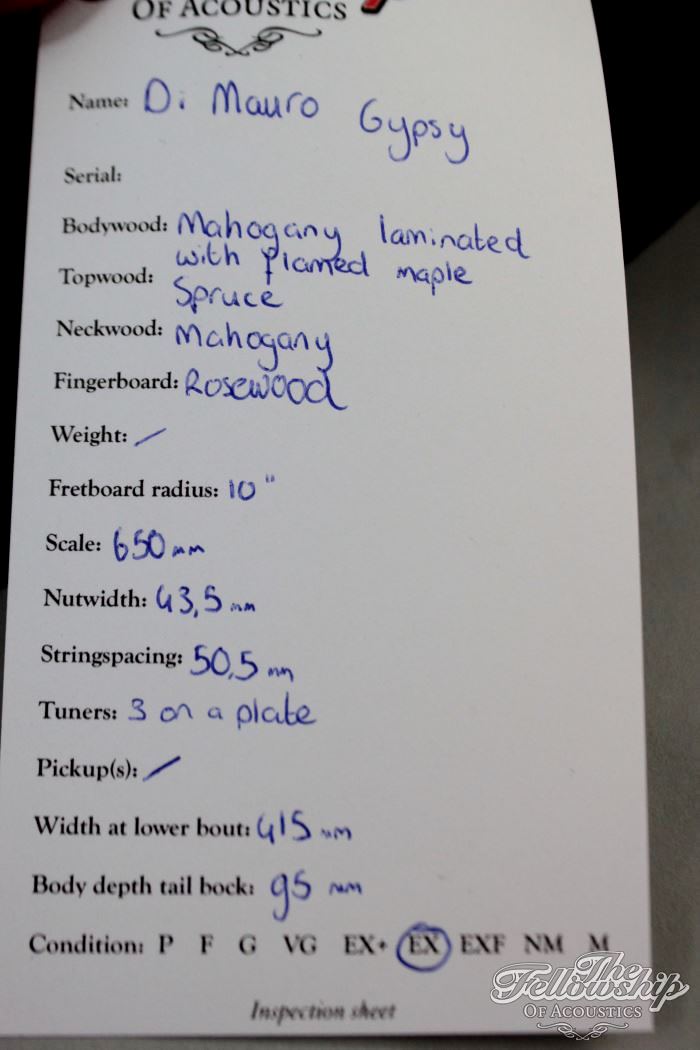 OF ACOUSTICS
Name: Di Mauro Gypsy
Serial:
Bodywood: Mahogany laminated
with flamed maple
Topwood: Spruce
Neckwood: Mahogany
Fingerboard: Rosewood
Weight: /
Fretboard radius: 10"
Scale: 650 mm
Nutwidth: 43,5 mm
Stringspacing: 50,5 mm
Tuners: 3 on a plate
Pickup(s): /
Width at lower bout: 415 mm
Body depth tail bock: 95 mm
Condition: P F G VG EX+ EX EXF NM M
Inspection sheet
The
Fellowship
OF ACOUSTICS